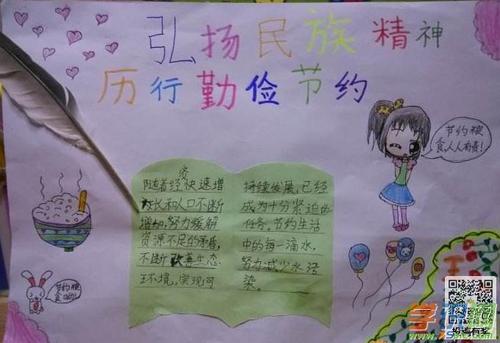 弘扬民族精神
历行勤俭节约
节约粮
食人人有责!
资
随着经快速增
长和人口不断
增加,努力缓解
资源不足的矛盾,
不断改善生态
王环境,实现可
持续发展,已经
成为十分紧迫的
任务,节约生活
中的每一滴水,
努力减少水污
染。
节约粮
食